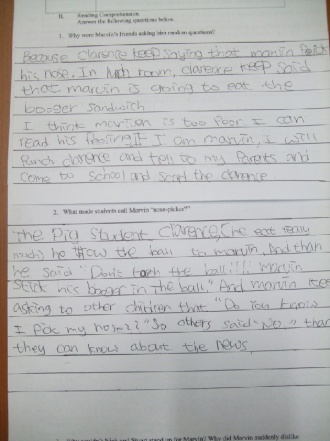 II. Reading Comprehension
Answer the following questions below.
1. Why were Marvin's friends asking him random questions?
Because clarence keep saying that marvin Picks
his nose. In lunch room, clarence keep said
that marvin is going to eat the
booger sandwich
I think martien is too Poor I can
read his feeling. If I am marvin, I will
Punch clarence and tell to my Parents and
come to school and scold the clarence.
2. What made students call Marvin "nose-picker"?
The Pig student Clarence, (he eat really
much) he throw the ball to marvin. And than
he said "Don't touch the ball!!!! marvin
Stick his booger in the ball." And marvin keep
asking to other children that "Do you know
I Pick my nose??" So others said "No" than
they can know about the news.
stand up for Marvin? Why did Marvin suddenly dislike